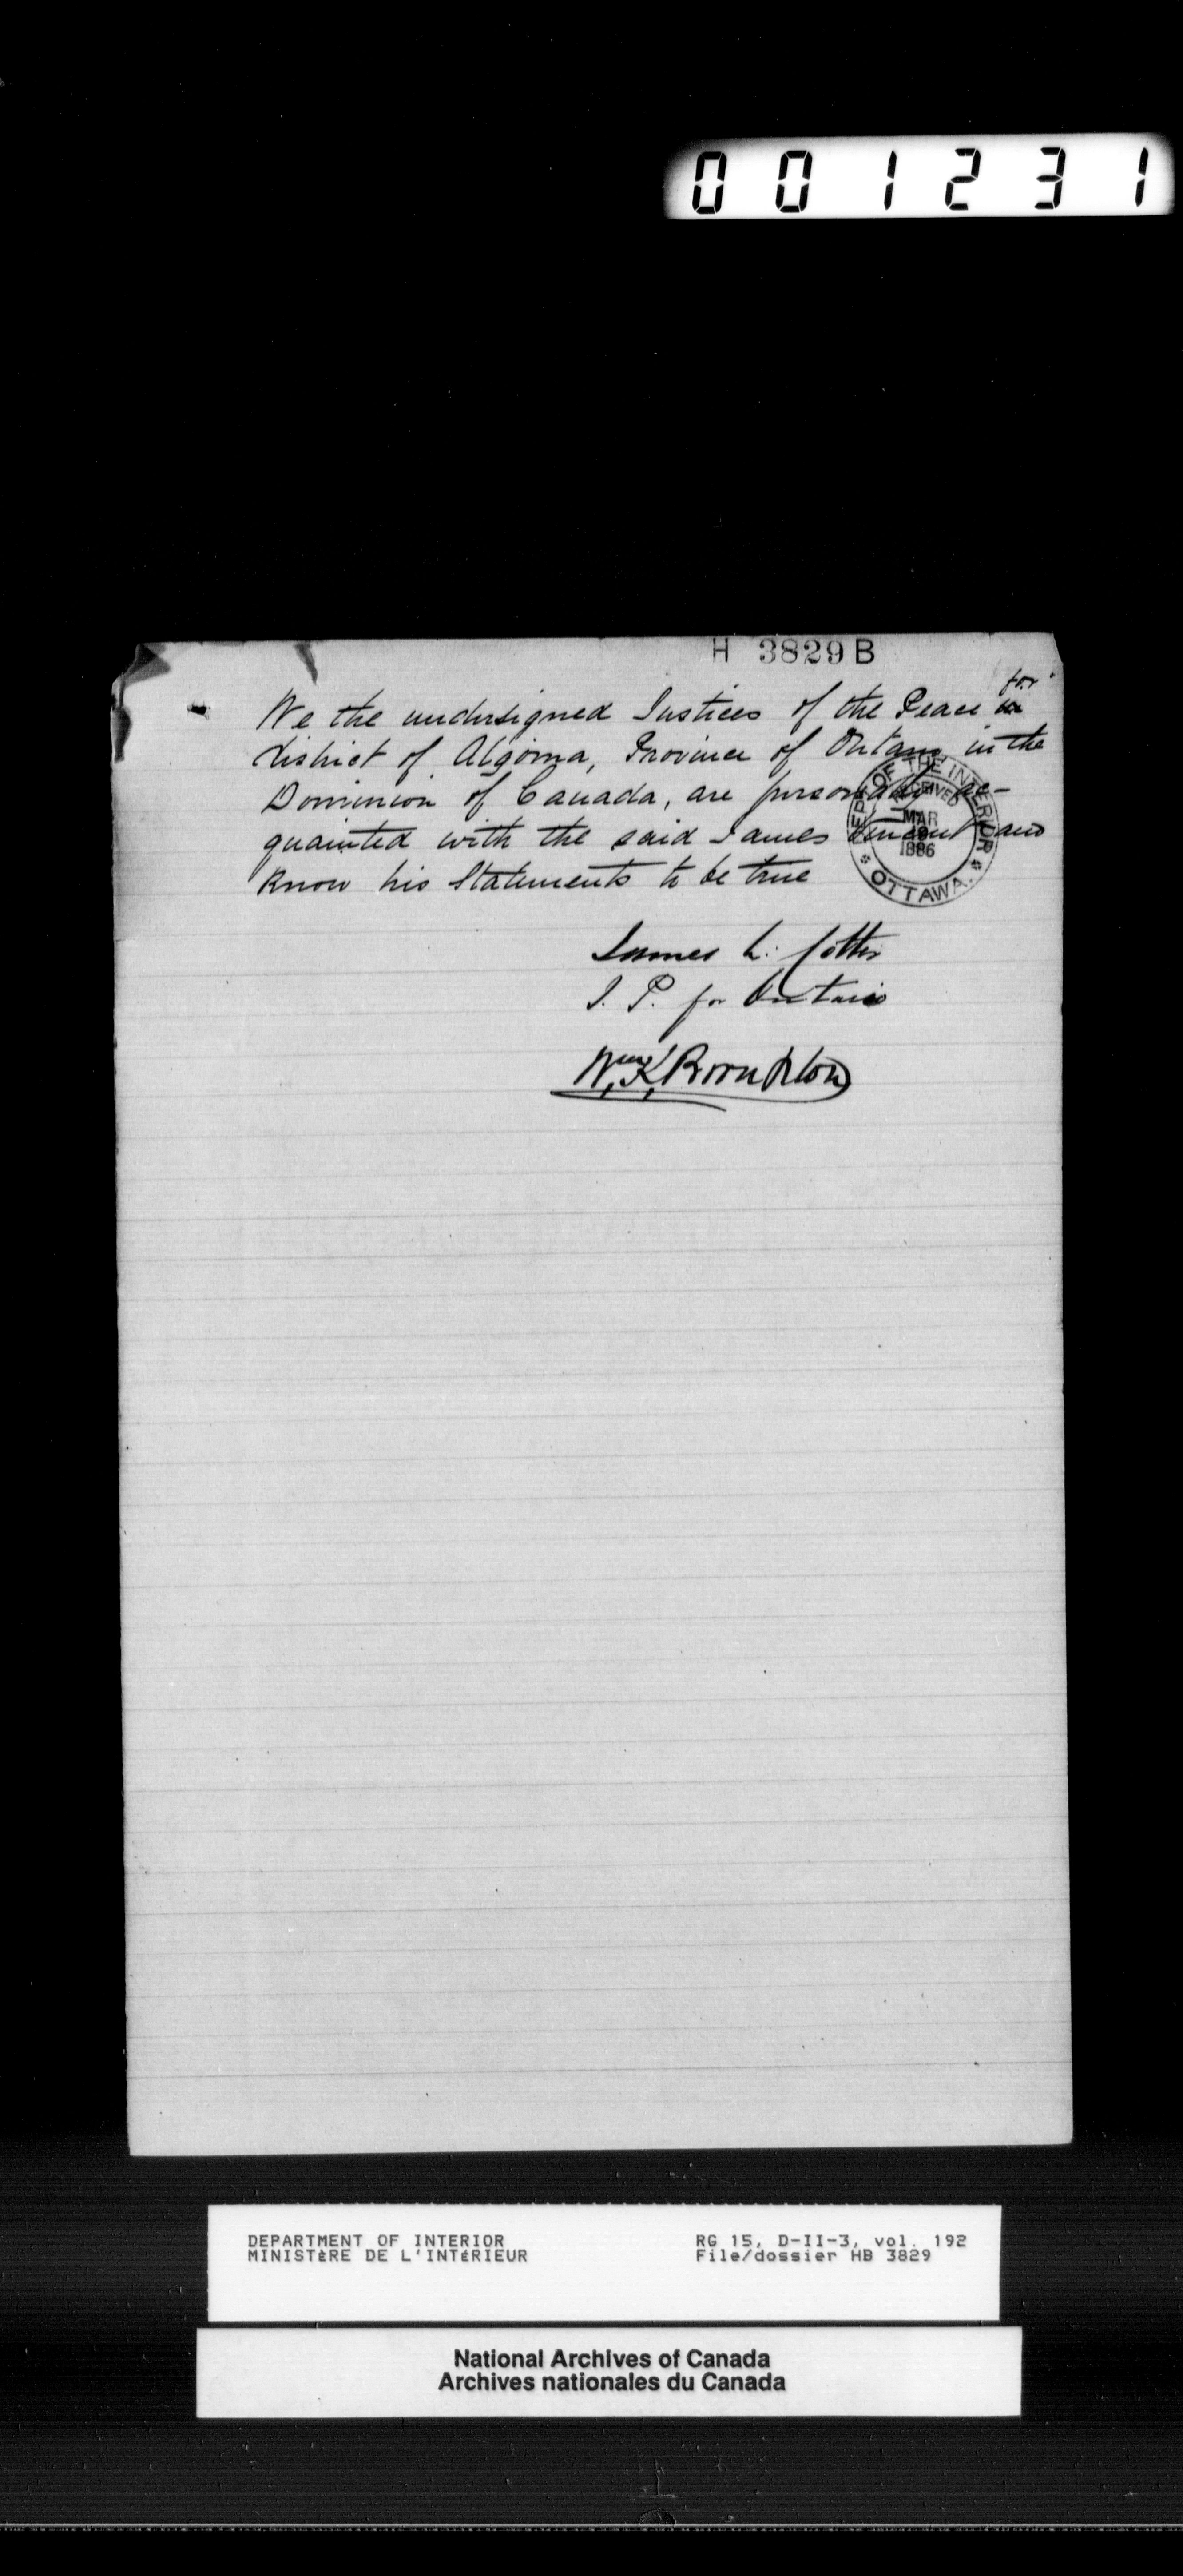 001231
H 3829 B
for
We the undersigned Justices of the Peace in
district of Algoma, Province of Ontario in the
Dominion of Canada, are personally ac-
quainted with the said James and
know his Statements to be true
DEPT. OF THE INTERIOR
RECEIVED
MAR
1886
OTTAWA.
James L. Cotter
J. P. for Ontario
Wm. K. Broughton
DEPARTMENT OF INTERIOR
MINISTÈRE DE L'INTÉRIEUR
RG 15, D-II-3, vol. 192
File/dossier HB 3829
National Archives of Canada
Archives nationales du Canada